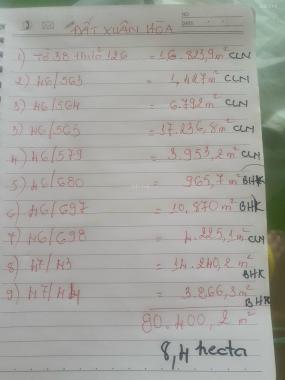 NO.
DATE
ĐẤT XUÂN HÒA
1) Tờ 38 thửa 126 = 16.823,9 m² CLN
2) 46/563 = 1,427 m² CLN
3) 46/564 = 6.792 m² CLN
3) 46/565 = 17.236,8 m² CLN
4) 46/579 = 3.953,2 m² CLN
5) 46/680 = 965,7 m² BHK
6) 46/697 = 10,870 m² BHK
7) 46/698 = 4.225,1 m² CLN
8) 47/43 = 14.240,2 m² BHK
9) 47/44 = 3.866,3 m² BHK
80.400,2 m²
8,4 hecta